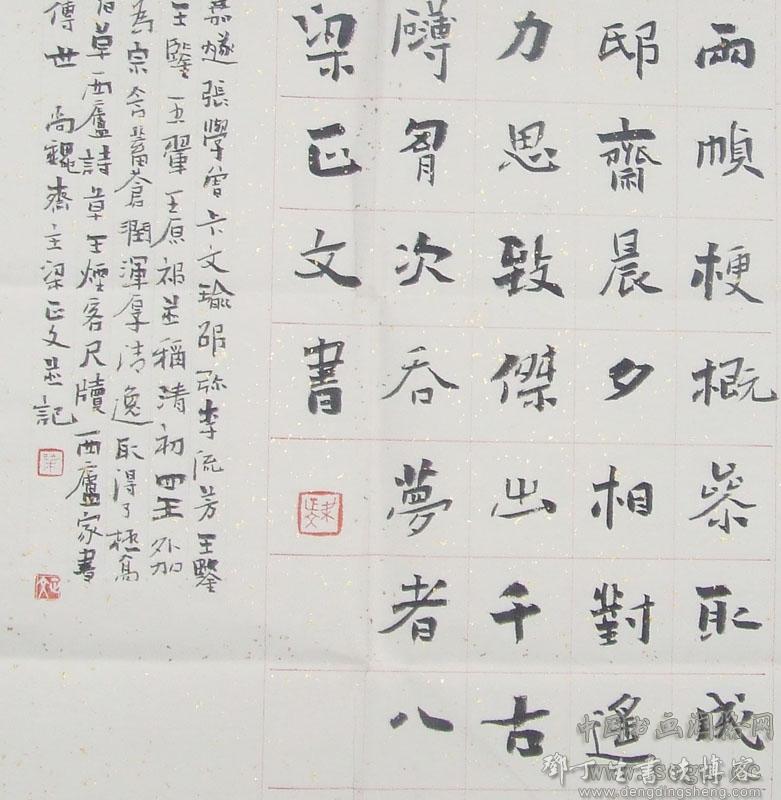 兩幀梗概參取成
邸齋晨夕相對遙
力思致傑出千古
礴胷次吞夢者八
梁正文書
嘉燧張學曾卞文瑜邵弥李流芳王鑒
王鑒王翬王原祁並稱清初四王外加
為宗含蓄蒼潤渾厚清逸取得了極高
草西廬詩草王煙客尺牘西廬家書
傳世尚魏齋主梁正文並記
中国书画润格网
鄧丁生書法博客
www.dengdingsheng.com